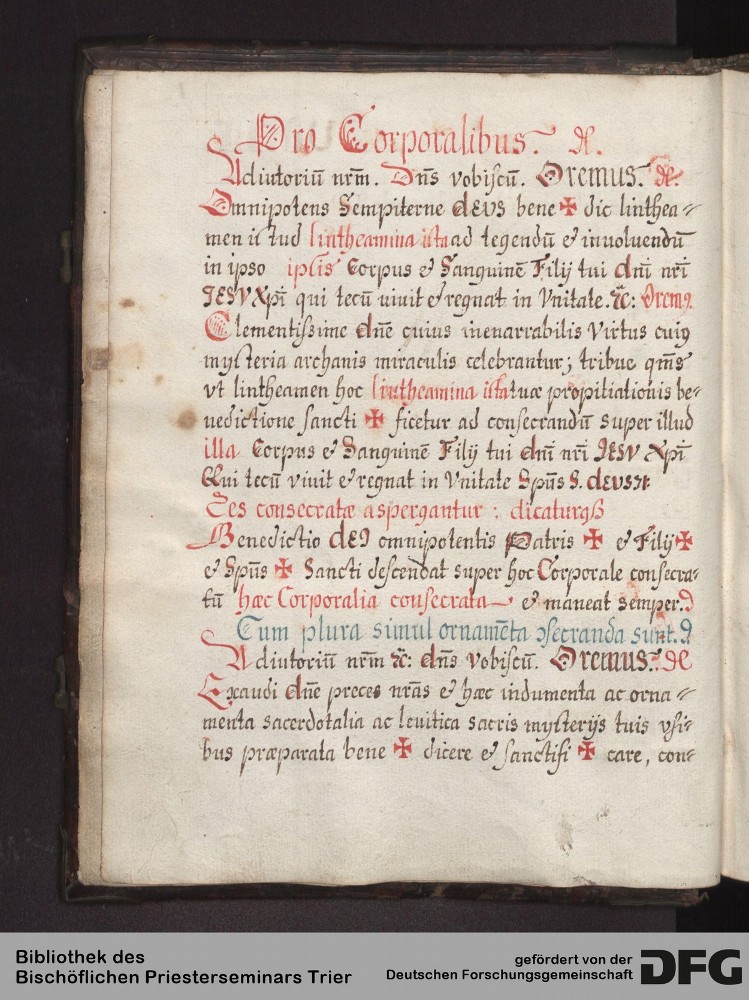 Pro Corporalibus.
Adiutoriū nr̄m. Dn̄s vobiscū. Oremus.
Omnipotens Sempiterne deus bene ✠ dic linthea=
men istud lintheamina ista ad tegendū et inuoluendū
in ipso ipsis Corpus et Sanguinē Filij tui dn̄i nr̄i
IESV Xp̄i qui tecū viuit et regnat in Vnitate. &c: Orem9
Clementissime dn̄e cuius inenarrabilis Virtus cui9
mysteria archanis miraculis celebrantur; tribue qm̄s
vt lintheamen hoc lintheamina ista tuæ propitiationis be=
nedictione sancti ✠ ficetur ad consecrandū super illud
illa Corpus et Sanguinē Filij tui dn̄i nr̄i IESV Xp̄i
Qui tecū viuit et regnat in Vnitate Spūs S. deus
consecratæ aspergantur: dicaturqꝫ
Benedictio dei omnipotentis Patris ✠ et Filij ✠
et Spūs ✠ Sancti descendat super hoc Corporale consecra=
tū hæc Corporalia consecrata et maneat semper.
Cum plura simul ornamēta ↄsecranda sunt.
Adiutoriū nr̄m &c: dn̄s vobiscū. Oremus.
Exaudi dn̄e preces nr̄as et hæc indumenta ac orna=
menta sacerdotalia ac leuitica sacris mysterijs tuis vsi=
bus præparata bene ✠ dicere et sanctifi ✠ care, con=
Bibliothek des
Bischöflichen Priesterseminars Trier
gefördert von der
Deutschen Forschungsgemeinschaft
DFG